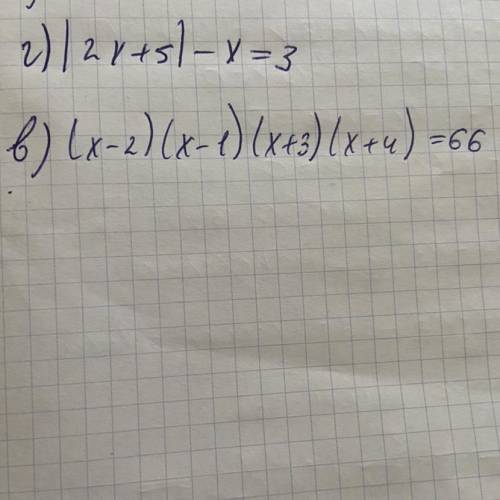 г) |2x+5|-x=3
в) (x-2)(x-1)(x+3)(x+4)=66